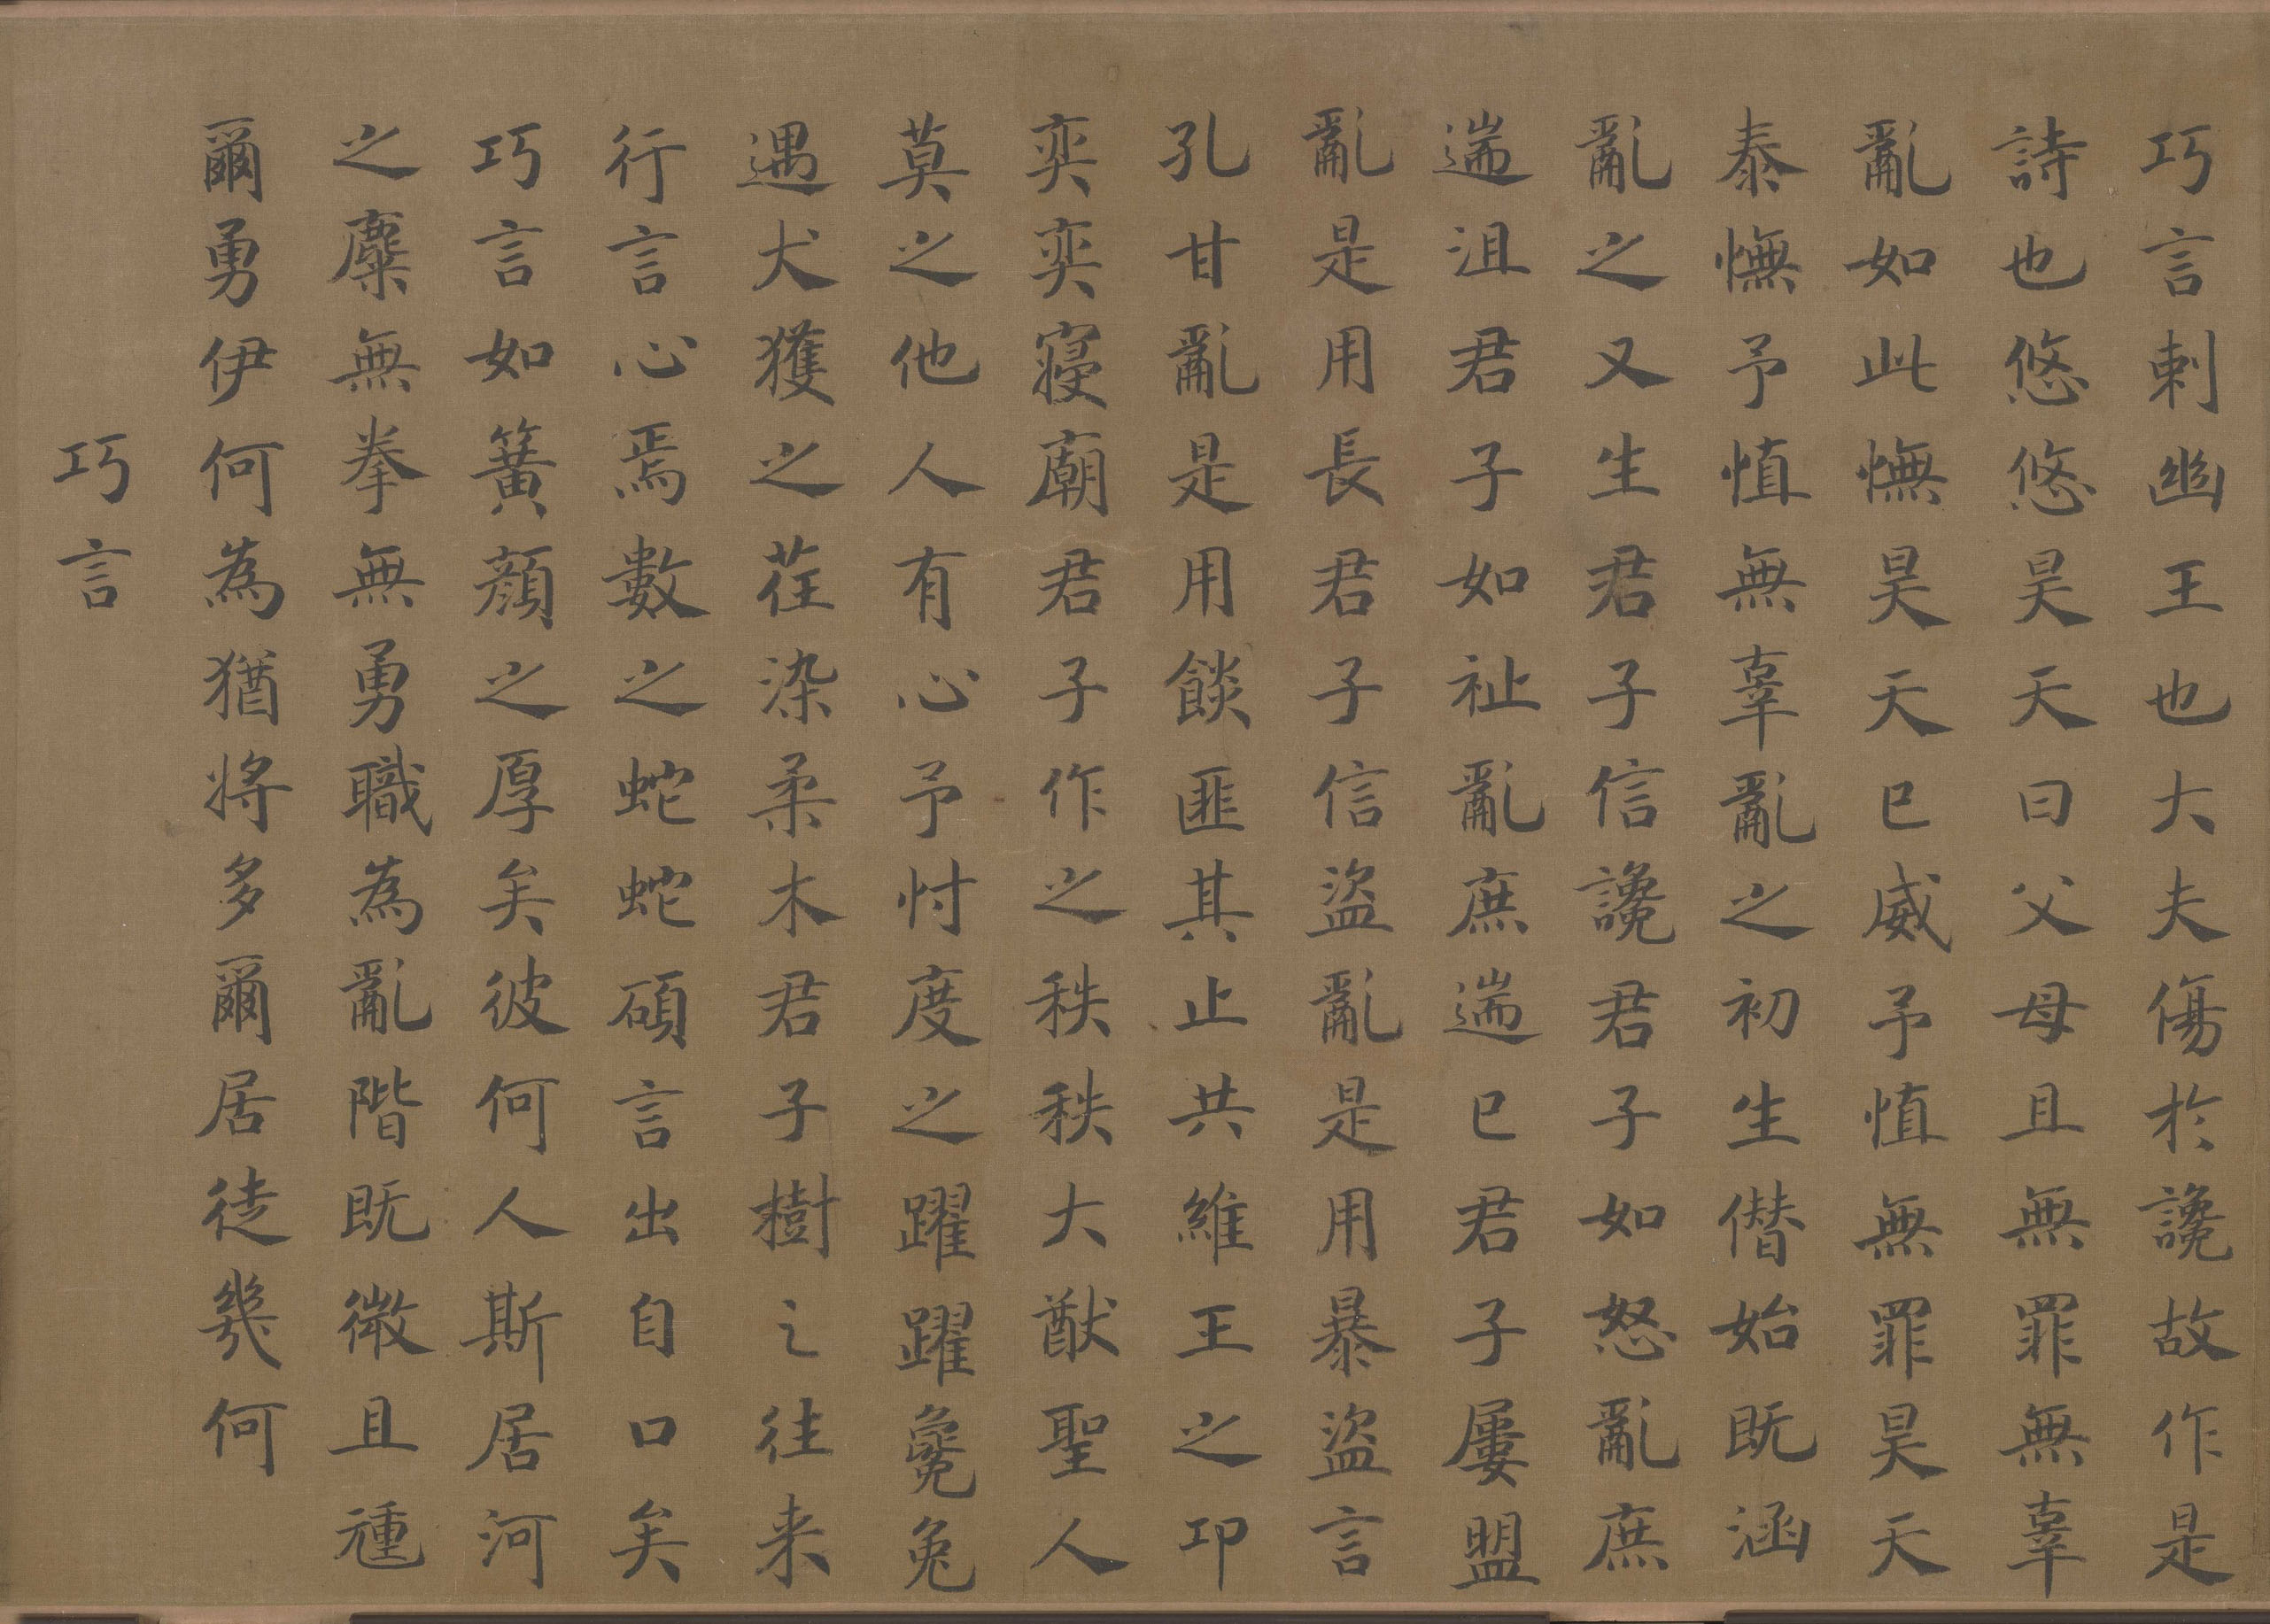 巧言刺幽王也大夫傷於讒故作是
詩也悠悠昊天曰父母且無罪無辜
亂如此憮昊天已威予慎無罪昊天
泰憮予慎無辜亂之初生僭始既涵
亂之又生君子信讒君子如怒亂庶
遄沮君子如祉亂庶遄已君子屢盟
亂是用長君子信盜亂是用暴盜言
孔甘亂是用餤匪其止共維王之邛
奕奕寢廟君子作之秩秩大猷聖人
莫之他人有心予忖度之躍躍毚兔
遇犬獲之荏染柔木君子樹之往来
行言心焉數之蛇蛇碩言出自口矣
巧言如簧顏之厚矣彼何人斯居河
之麋無拳無勇職為亂階既微且尰
爾勇伊何為猶將多爾居徒幾何
巧言